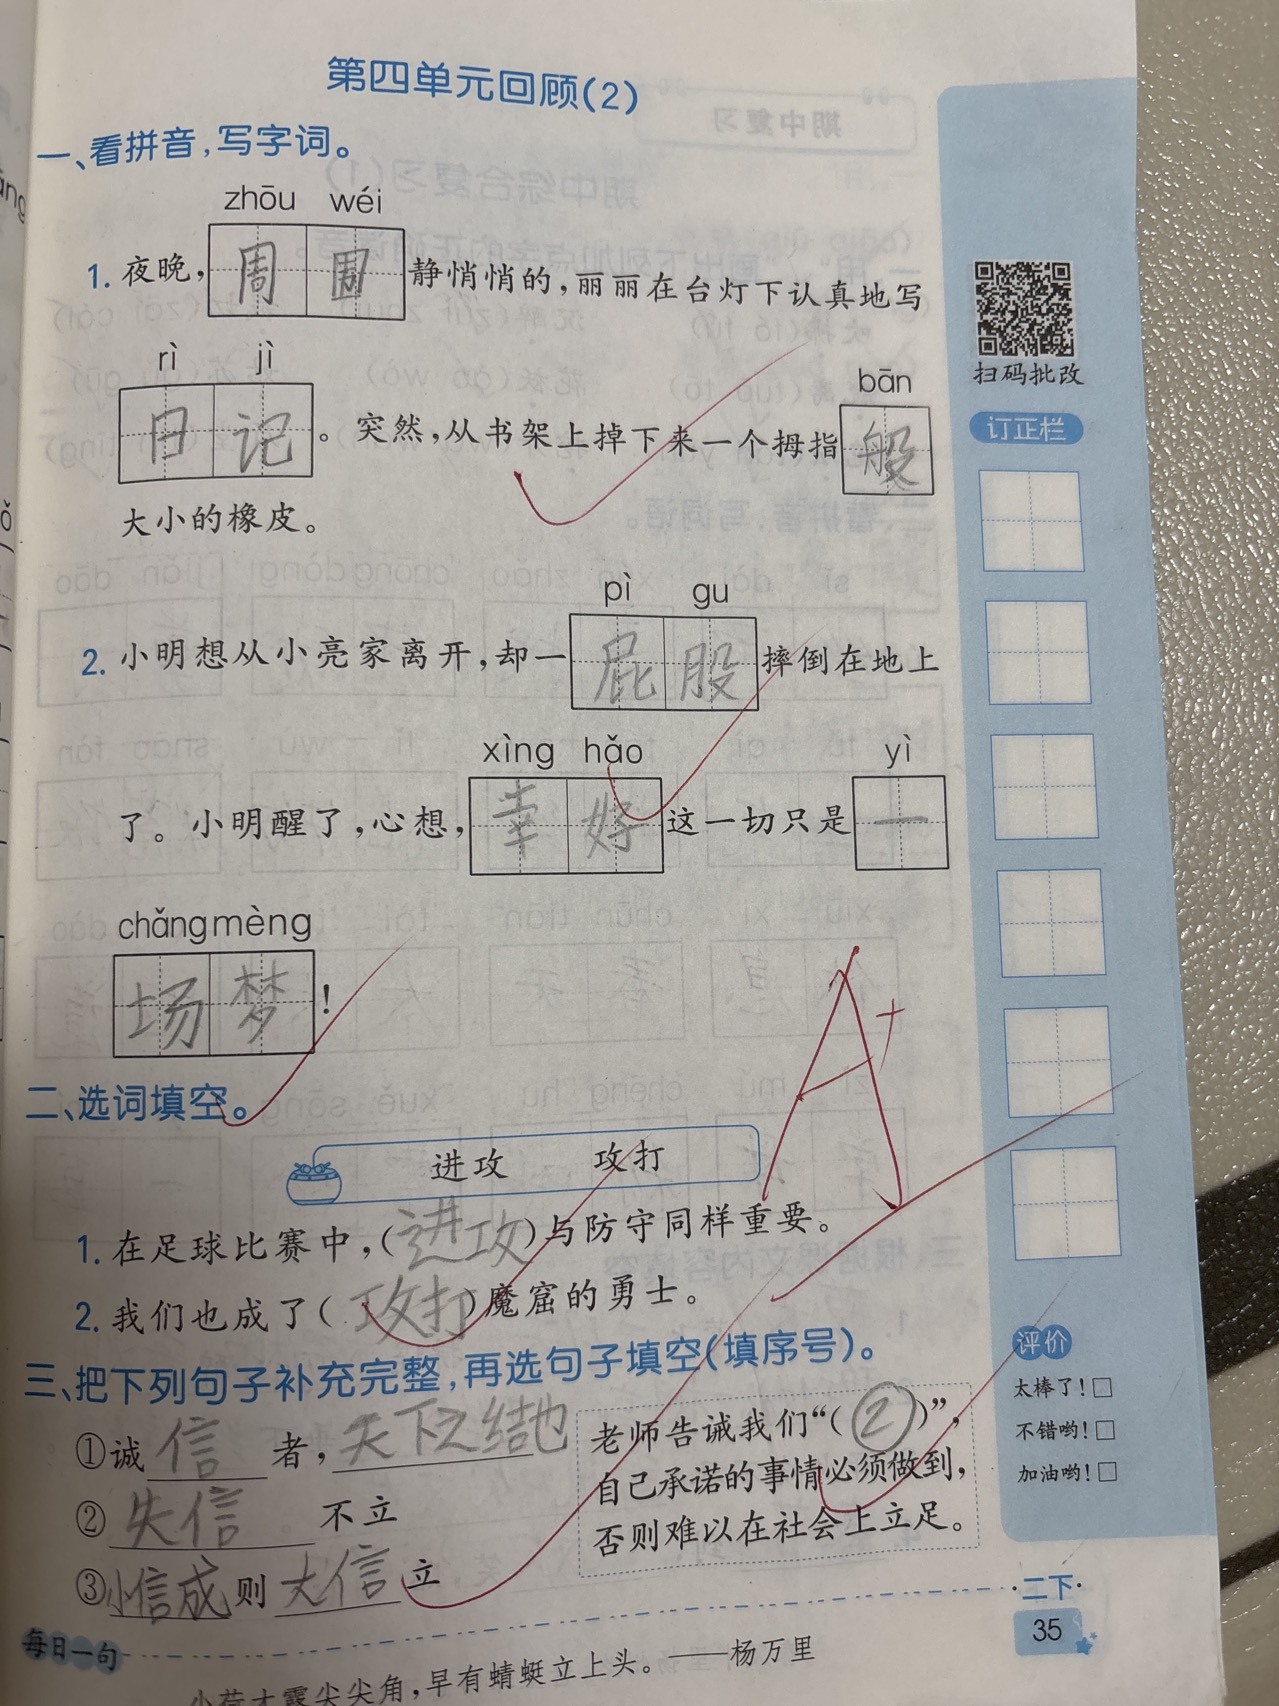 第四单元回顾(2)
一、看拼音,写字词。
zhōu wéi
1. 夜晚,周围静悄悄的,丽丽在台灯下认真地写
rì jì bān
日记。突然,从书架上掉下来一个拇指般
大小的橡皮。
pì gu
2. 小明想从小亮家离开,却一屁股摔倒在地上
xìng hǎo yì
了。小明醒了,心想,幸好这一切只是一
chǎng mèng
场梦!
A+
二、选词填空。
进攻 攻打
1. 在足球比赛中,(进攻)与防守同样重要。
2. 我们也成了(攻打)魔窟的勇士。
三、把下列句子补充完整,再选句子填空(填序号)。
①诚信者,天下之结也
②失信不立
③小信成则大信立
老师告诫我们“(②)”,
自己承诺的事情必须做到,
否则难以在社会上立足。
每日一句
小荷才露尖尖角,早有蜻蜓立上头。——杨万里
扫码批改
订正栏
评价
太棒了!□
不错哟!□
加油哟!□
·二下·
35